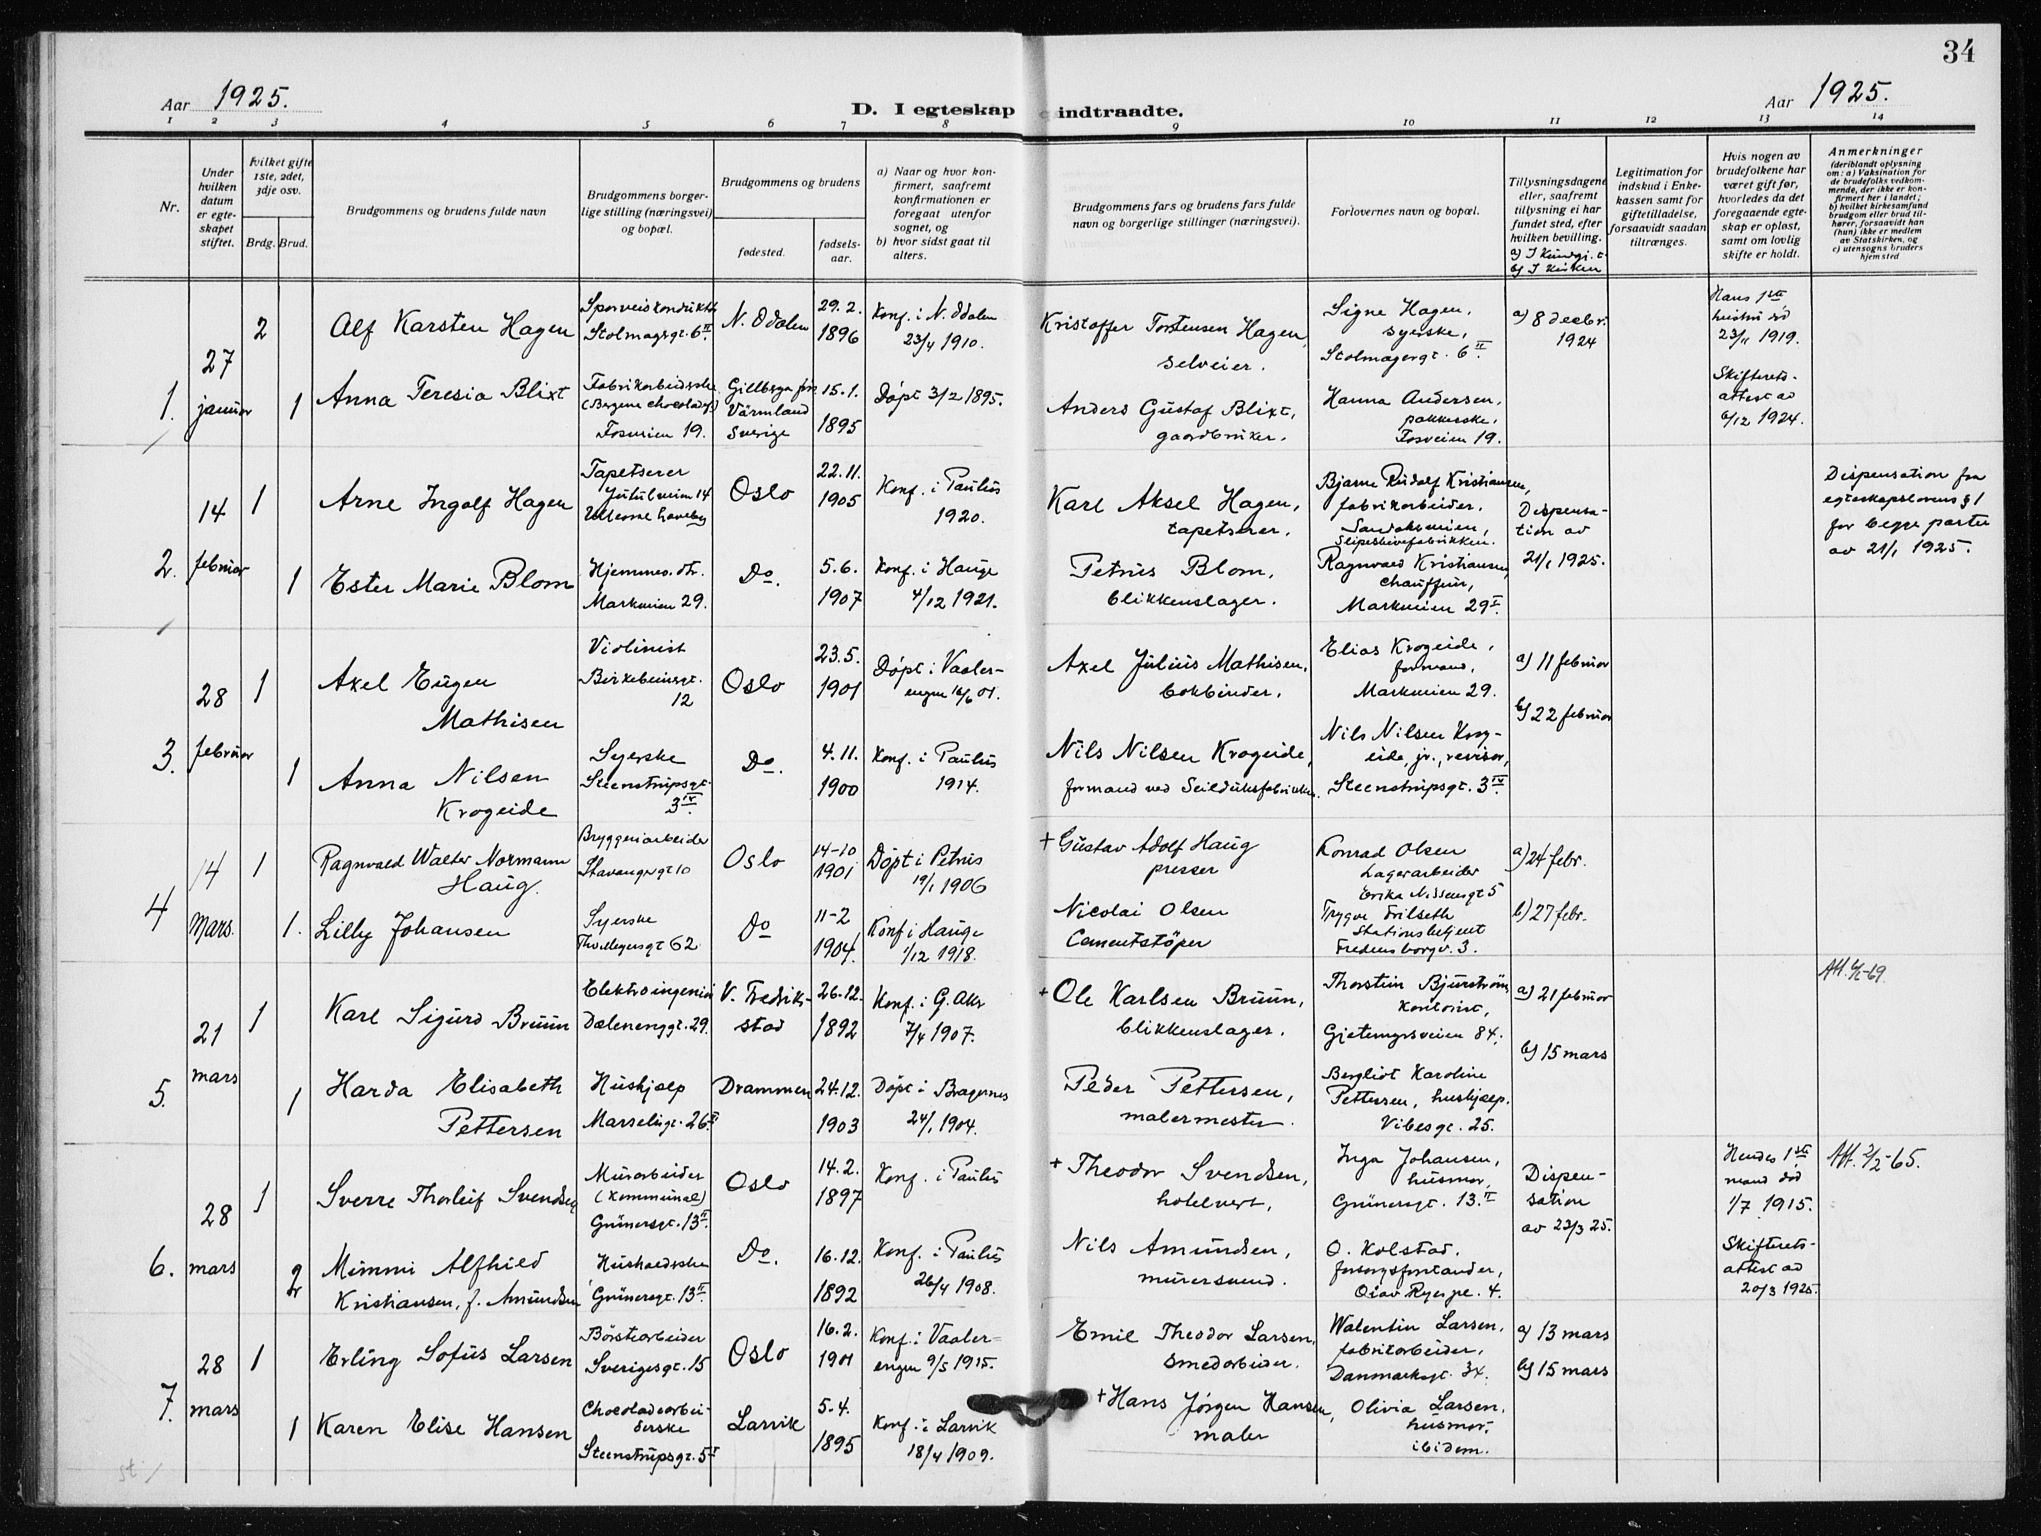 34
Aar 1925.
D. I egteskap indtraadte.
Aar 1925.
1 2 3 4 5 6 7 8 9 10 11 12 13 14
Nr.
Under hvilken datum er egteskapet stiftet.
Hvilket gifte 1ste, 2det, 3dje osv.
Brdg. Brud.
Brudgommens og brudens fulde navn
Brudgommens borgerlige stilling (næringsvei) og bopæl.
Brudgommens og brudens
fødested.
fødselsaar.
a) Naar og hvor konfirmert, saafremt konfirmationen er foregaat utenfor sognet, og
b) hvor sidst gaat til alters.
Brudgommens fars og brudens fars fulde navn og borgerlige stillinger (næringsvei).
Forlovernes navn og bopæl.
Tillysningsdagene eller, saafremt tillysning ei har fundet sted, efter hvilken bevilling.
b) I kirken
Legitimation for indskud i Enkekassen samt for giftetilladelse, forsaavidt saadan tiltrænges.
Hvis nogen av brudefolkene har været gift før, hvorledes da det foregaaende egteskap er opløst, samt om lovlig skifte er holdt.
Anmerkninger
(deriblandt oplysning om: a) Vaksination for de brudefolks vedkommende, der ikke er konfirmert her i landet;
b) hvilket kirkesamfund brudgom eller brud tilhører, forsaavidt han (hun) ikke er medlem av Statskirken, og
c) utensogns bruders hjemsted
1.
27
januar
2
Alf Karsten Hagen
Stolmagergt. 6 II
N. Odalen
29.2.
1896
Konf. i N. Odalen
23/4 1910.
Kristoffer Torstensen Hagen,
selveier.
Signe Hagen,
syerske,
Stolmagergt. 6 II
a) 8 decbr.
1924
Hans 1ste
hustru død
23/11 1919.
1
Anna Teresia Blixt
Fabrikarbeiderske
Fosveien 19.
Värmland
Sverige
15.1.
1895
Døpt 3/2 1895.
Anders Gustaf Blixt,
gaardbruker.
Hanna Andersen,
pakkerske,
Fosveien 19.
Skifterets-
attest ad
6/12 1924.
2.
14
februar
1
Arne Ingolf Hagen
Tapetserer
Jutulveien 14
Oslo
22.11.
1905
Konf. i Paulus
1920.
Karl Aksel Hagen,
tapetserer.
Bjarne Rudolf Kristiansen,
fabrikarbeider.
Sandakerveien,
Slipeskivefabrikken.
Dispensa-
tion av
21/1 1925.
Dispensation fra
egteskapslovens § 1
for begge parter
av 21/1 1925.
1
Ester Marie Blom
Hjemmev. dtr.
Markveien 29.
Do.
5.6.
1907
Konf. i Hauge
4/12 1921.
Petrus Blom,
blikkenslager.
Ragnvald Kristiansen,
chauffeur,
Markveien 29 I.
3.
28
februar
1
Axel Eugen
Mathisen
Violinist
Birkebeinergt.
12
Oslo
23.5.
1901
Døpt i Vaaler-
engen 16/6 01.
Axel Julius Mathisen,
bokbinder.
Elias Krogeide,
formand,
Markveien 29.
a) 11 februar
b) 22 februar
1
Anna Nilsen
Krogeide
Syerske
Steenstrupsgt.
3 IV
Do.
4.11.
1900
Konf. i Paulus
1914.
Nils Nilsen Krogeide,
formand ved Seildugsfabrikken.
Nils Nilsen Krog-
eide, jr., revisor,
Steenstrupsgt. 3 IV.
4
14
Mars.
1
Ragnvald Walter Normann
Haug.
Bryggeriarbeider
Stavangergt 10
Oslo
14-10
1901
Døpt i Petrus
19/1 1906
+ Gustav Adolf Haug
presser
Konrad Olsen
Lagerarbeider
Erika Nissensgt 5
a) 24 febr.
b) 27 febr.
1.
Lilly Johansen
Syerske
Thv. Meyersgt 62
Do
11-2
1904.
Konf i Hauge
1/12 1918.
Nicolai Olsen
Cementstöper
Trygve Frilseth
Stationsbetjent
Fredensborgv. 3.
5.
21
mars
1
Karl Sigurd Bruun
Elektroingeniør
Dælenenggt. 29.
V. Fredrik-
stad
26.12.
1892
Konf. i G. Aker
7/4 1907.
+ Ole Karlsen Bruun,
blikkenslager.
Thorstein Bjurstrøm,
kontorist,
Gjetemyrsveien 84.
a) 21 februar
b) 15 mars
1
Harda Elisabeth
Pettersen
Hushjælp
Marseliigt. 26 II.
Drammen
24.12.
1903
Døpt i Bragernes
24/1 1904.
Peder Pettersen,
malermester.
Bergliot Karoline
Pettersen, hushjælp.
Vibesgt. 25.
6.
28
mars
1
Sverre Thorleif Svendsen
Murarbeider
(Kommunal)
Grünersgt. 13 II.
Oslo
14.2.
1897
Konf. i Paulus
+ Theodor Svendsen,
hotelvert.
Inga Johansen,
husmor,
Grünersgt. 13. II
Dispen-
sation
av 23/3 25.
Hendes 1ste
mand død
1/7 1915.
Att. 2/2-65.
2
Mimmi Alfhild
Kristiansen, f. Amundsen
Husholderske
Grünersgt. 13 II.
Do.
16.12.
1892
Konf. i Paulus
26/4 1908.
Nils Amundsen,
murersvend.
O. Kolstad.
forsorgsforstander,
Olav Ryes pl. 4.
Skifterets-
attest ad
20/3 1925.
7.
28
mars
1
Erling Sofus Larsen
Børstearbeider
Sverigesgt. 15
Oslo
16.2.
1901
Konf. i Vaaler-
engen 9/5 1915.
Emil Theodor Larsen,
smedarbeider.
Walentin Larsen,
fabrikarbeider,
Danmarksgt. 34.
a) 13 mars
b) 15 mars
1
Karen Elise Hansen
Chocoladearbei-
derske
Steenstrupsgt. 5 I
Larvik
5.4.
1895
Konf. i Larvik
18/4 1909.
+ Hans Jørgen Hansen,
maler
Olivia Larsen,
husmor,
ibidem.